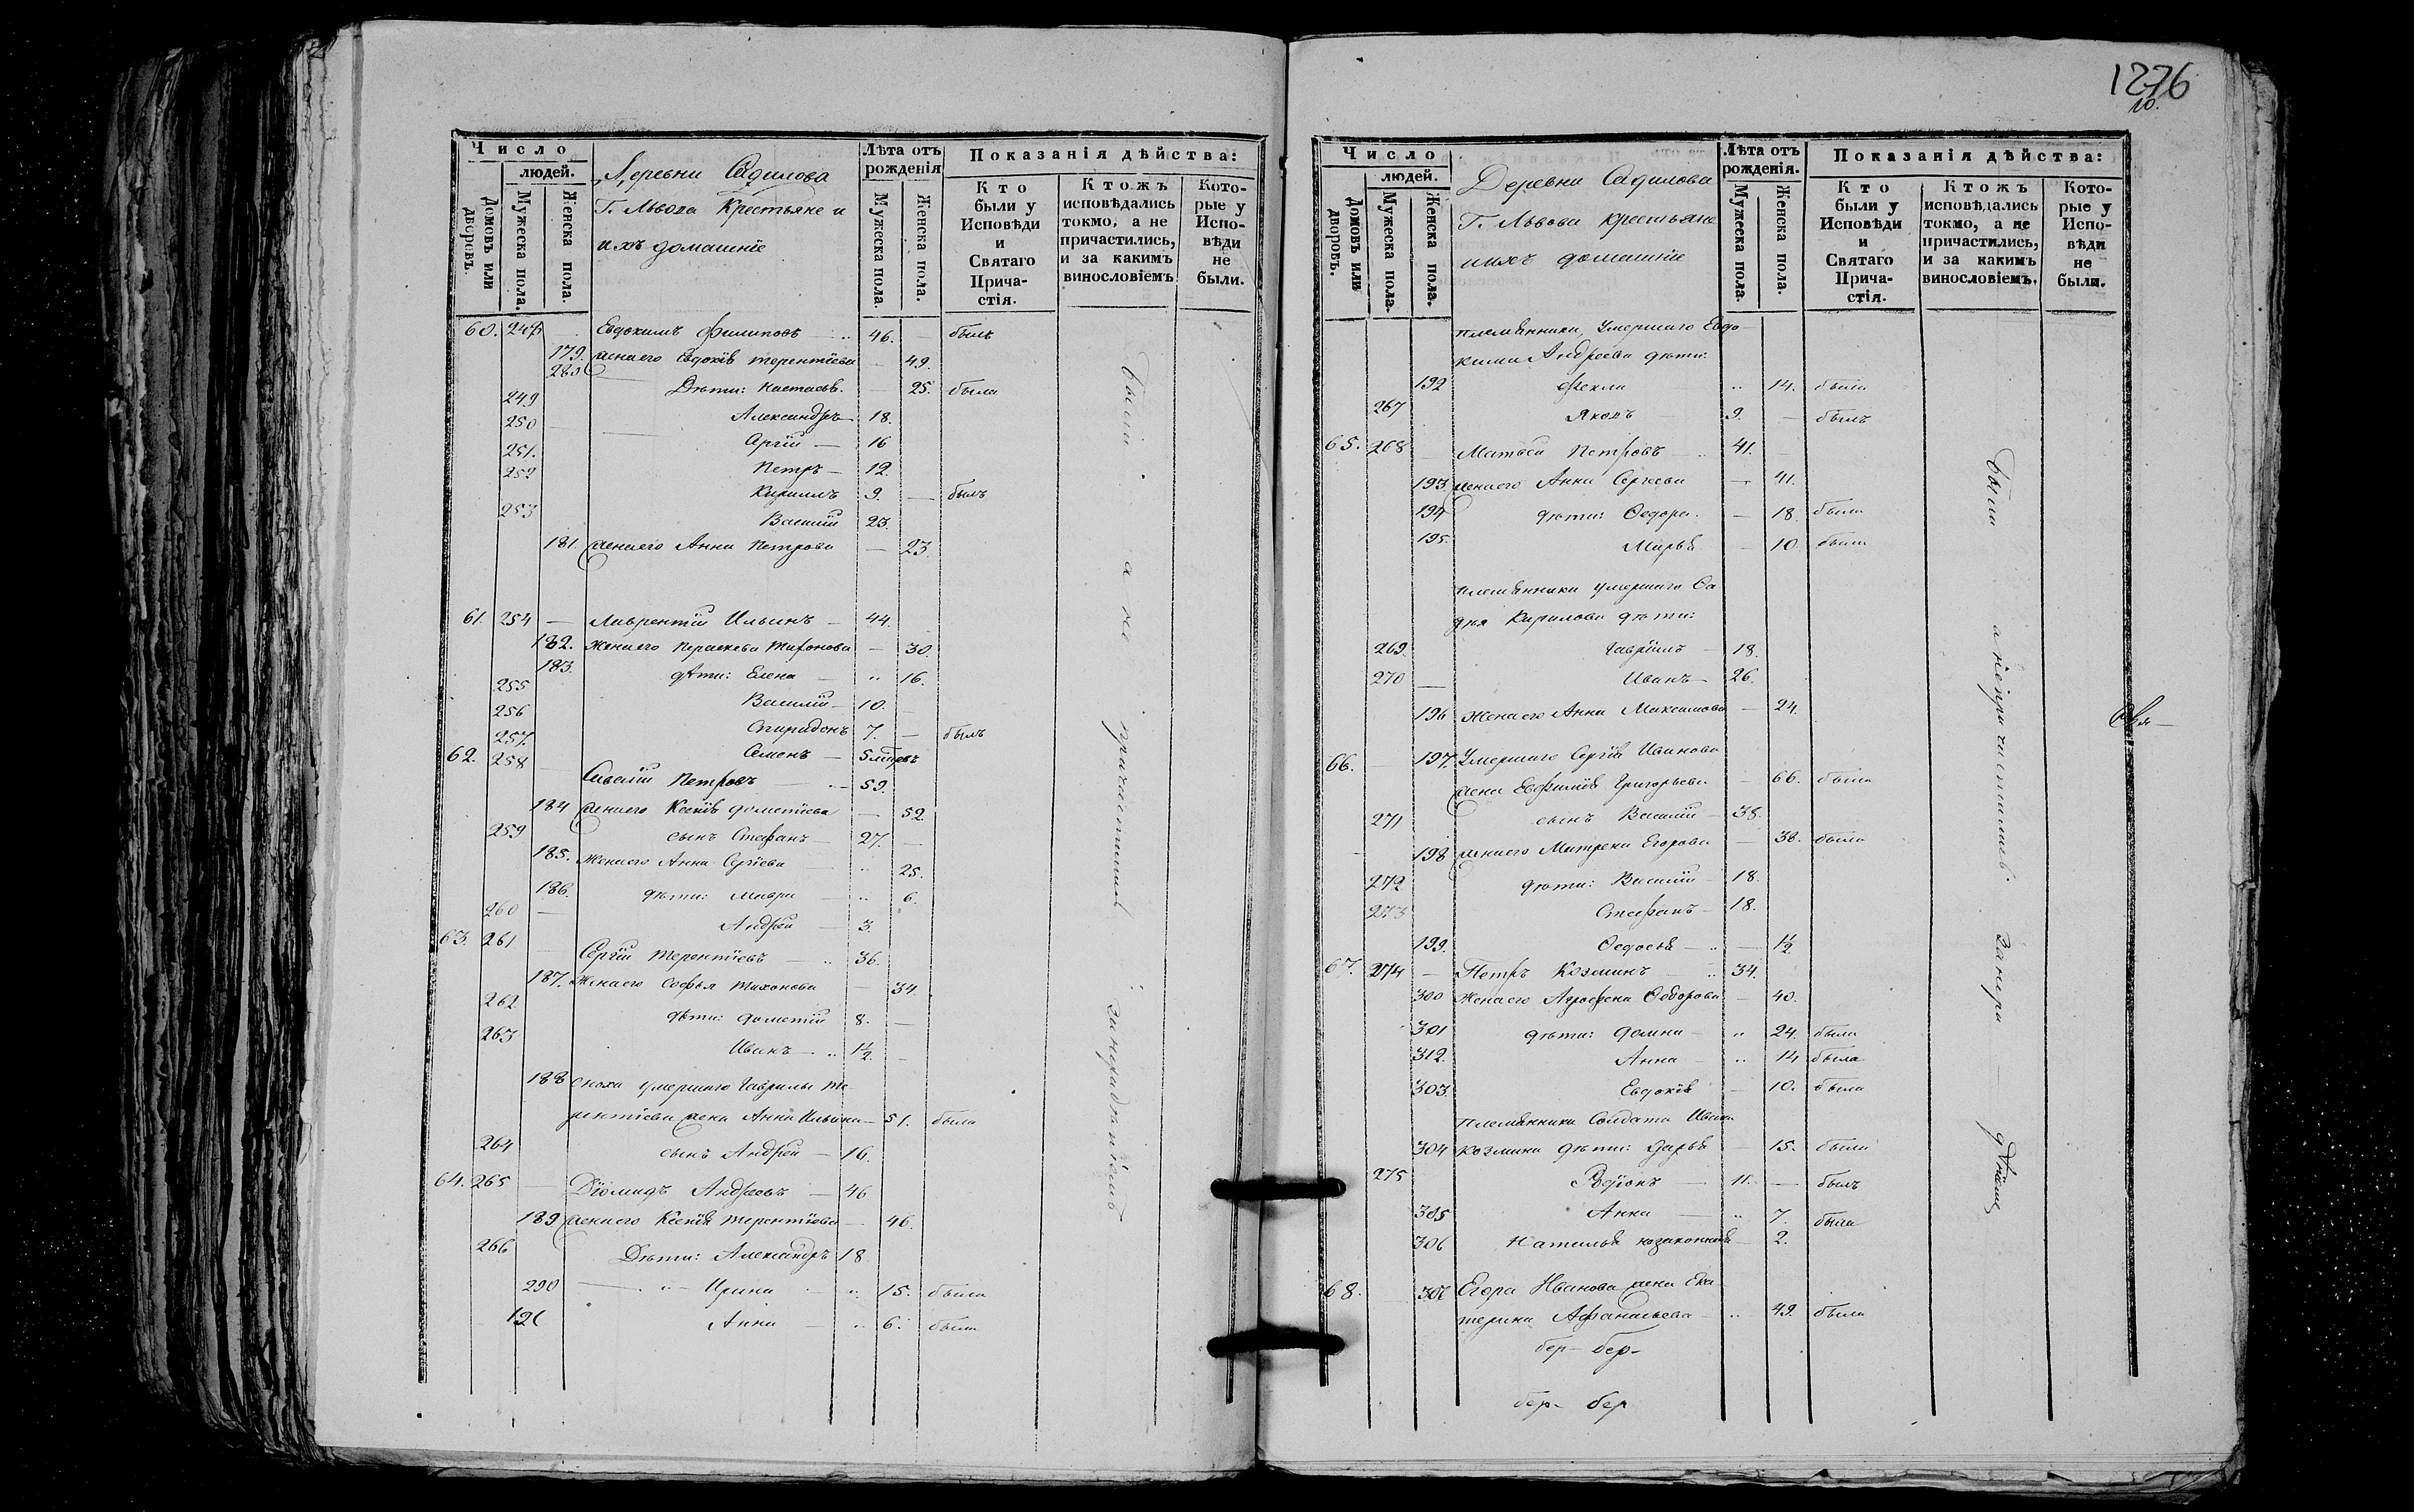 Число
людей.
Домовъ или дворовъ.
Мужеска пола.
Женска пола.
Деревни Садилова
Г. Львова Крестьяне и
ихъ домашніе
Лѣта отъ рожденія
Мужеска пола.
Женска пола.
Показанія дѣйства:
Кто были у Исповѣди и Святаго Прича-стія.
Ктожъ исповѣдались токмо, а не причастились, и за какимъ винословіемъ
Кото-рые у Испо-вѣди не были.
60. 248 Евдокимъ Филиповъ 46. — былъ
179. жена его Евдокія Терентіева — 49.
280 Дѣти: Настасья. 25. была
249 Александръ 18.
250 Сергій — 16
251. Петръ — 12
252 Кирилъ 9. — былъ
253 Василій 23.
181. жена его Анна Петрова — 23
61. 254 — Лаврентій Ильинъ — 44.
182. Жена его Параскева Тифонова — 30.
183. дѣти: Елена — 16.
255 Василій — 10.
256 Спиридонъ 7. — былъ
257. Семенъ — 5
62. 258 Савелій Петровъ — 59.
184 жена его Ксенія Дометіева — 52.
259 сынъ Стефанъ — 27. —
185. Жена его Анна Сергіева — 25.
186. дѣти: Мавра — 6.
260 — Андрей — 3.
63. 261 Сергій Терентіевъ — 36.
187. Жена его Софья Тихонова — 34.
262 дѣти: Дометій 8. —
263 Иванъ — 1½. —
188 сноха умершаго Гаврилы Те-
рентіева жена Анна Ильина — 51. была
264 сынъ Андрей — 16.
64. 265 Діомидъ Андреевъ — 46
189 жена его Ксенія Терентіева — 46.
266 Дѣти: Александръ 18
290 Ирина 15. была
191 Анна — 6. была
были а не причастились
1276
10.
Число
людей.
Домовъ или дворовъ.
Мужеска пола.
Женска пола.
Деревни Садилова
Г. Львова крестьяне
и ихъ домашніе
Лѣта отъ рожденія.
Мужеска пола.
Женска пола.
Показанія дѣйства:
Кто были у Исповѣди и Святаго Прича-стія.
Ктожъ исповѣдались токмо, а не причастились, и за какимъ винословіемъ.
Кото-рые у Испо-вѣди не были.
племянники, умершаго Евдо-
кима Андреева дѣти:
192 Фекла 14. была
267 Яковъ 9. — былъ
65. 268 Матвей Петровъ 41. —
193. жена его Анна Сергеева — 41.
194 дѣти: Федора. — 18. была
195. Марья — 10. была
племянники умершаго Фа
дея Кирилова дѣти:
269. Гавріилъ — 18.
270 — Иванъ — 26.
196 Жена его Анна Максимова — 24.
66. 197. Умершаго Сергія Иванова
жена Евфимія Григорьева 66. была
271 сынъ Василій — 38.
198 жена его Матрена Егорова — 38. была
272 дѣти: Василій — 18.
273 Стефанъ — 18.
199. Федосья — 1½
67. 274 — Петръ Козминъ 34.
300 Жена его Агрофена Федорова — 40.
301 дѣти: Домна — 24. была
312. Анна — 14 была
303. Евдокія — 10. была
Племянники Солдата Ивана
304 Козмина дѣти: Дарья — 15. была
275 Родіонъ — 11. — былъ
305 Анна — 7. была
306 Наталья незаконная — 2.
68. 307 Егора Иванова жена Ека-
терина Афанасьева — 49. была
бер- бер-
бер- бер
были а непричастились